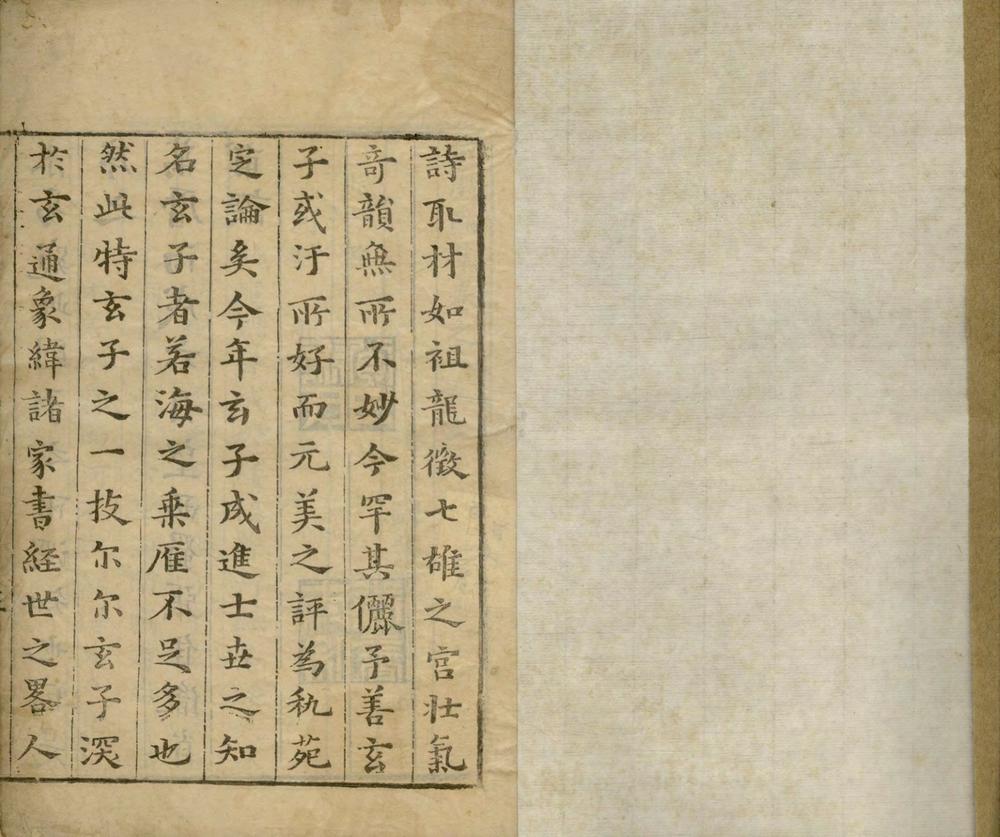 詩取材如祖龍徵七雄之宫壮氣
竒韻無所不妙今罕其儷予善玄
子或汙所好而元美之評為秇苑
定論矣今年玄子成進士世之知
名玄子者若海之乗雁不足多也
然此特玄子之一技尔尔玄子深
於玄通象緯諸家書経世之畧人